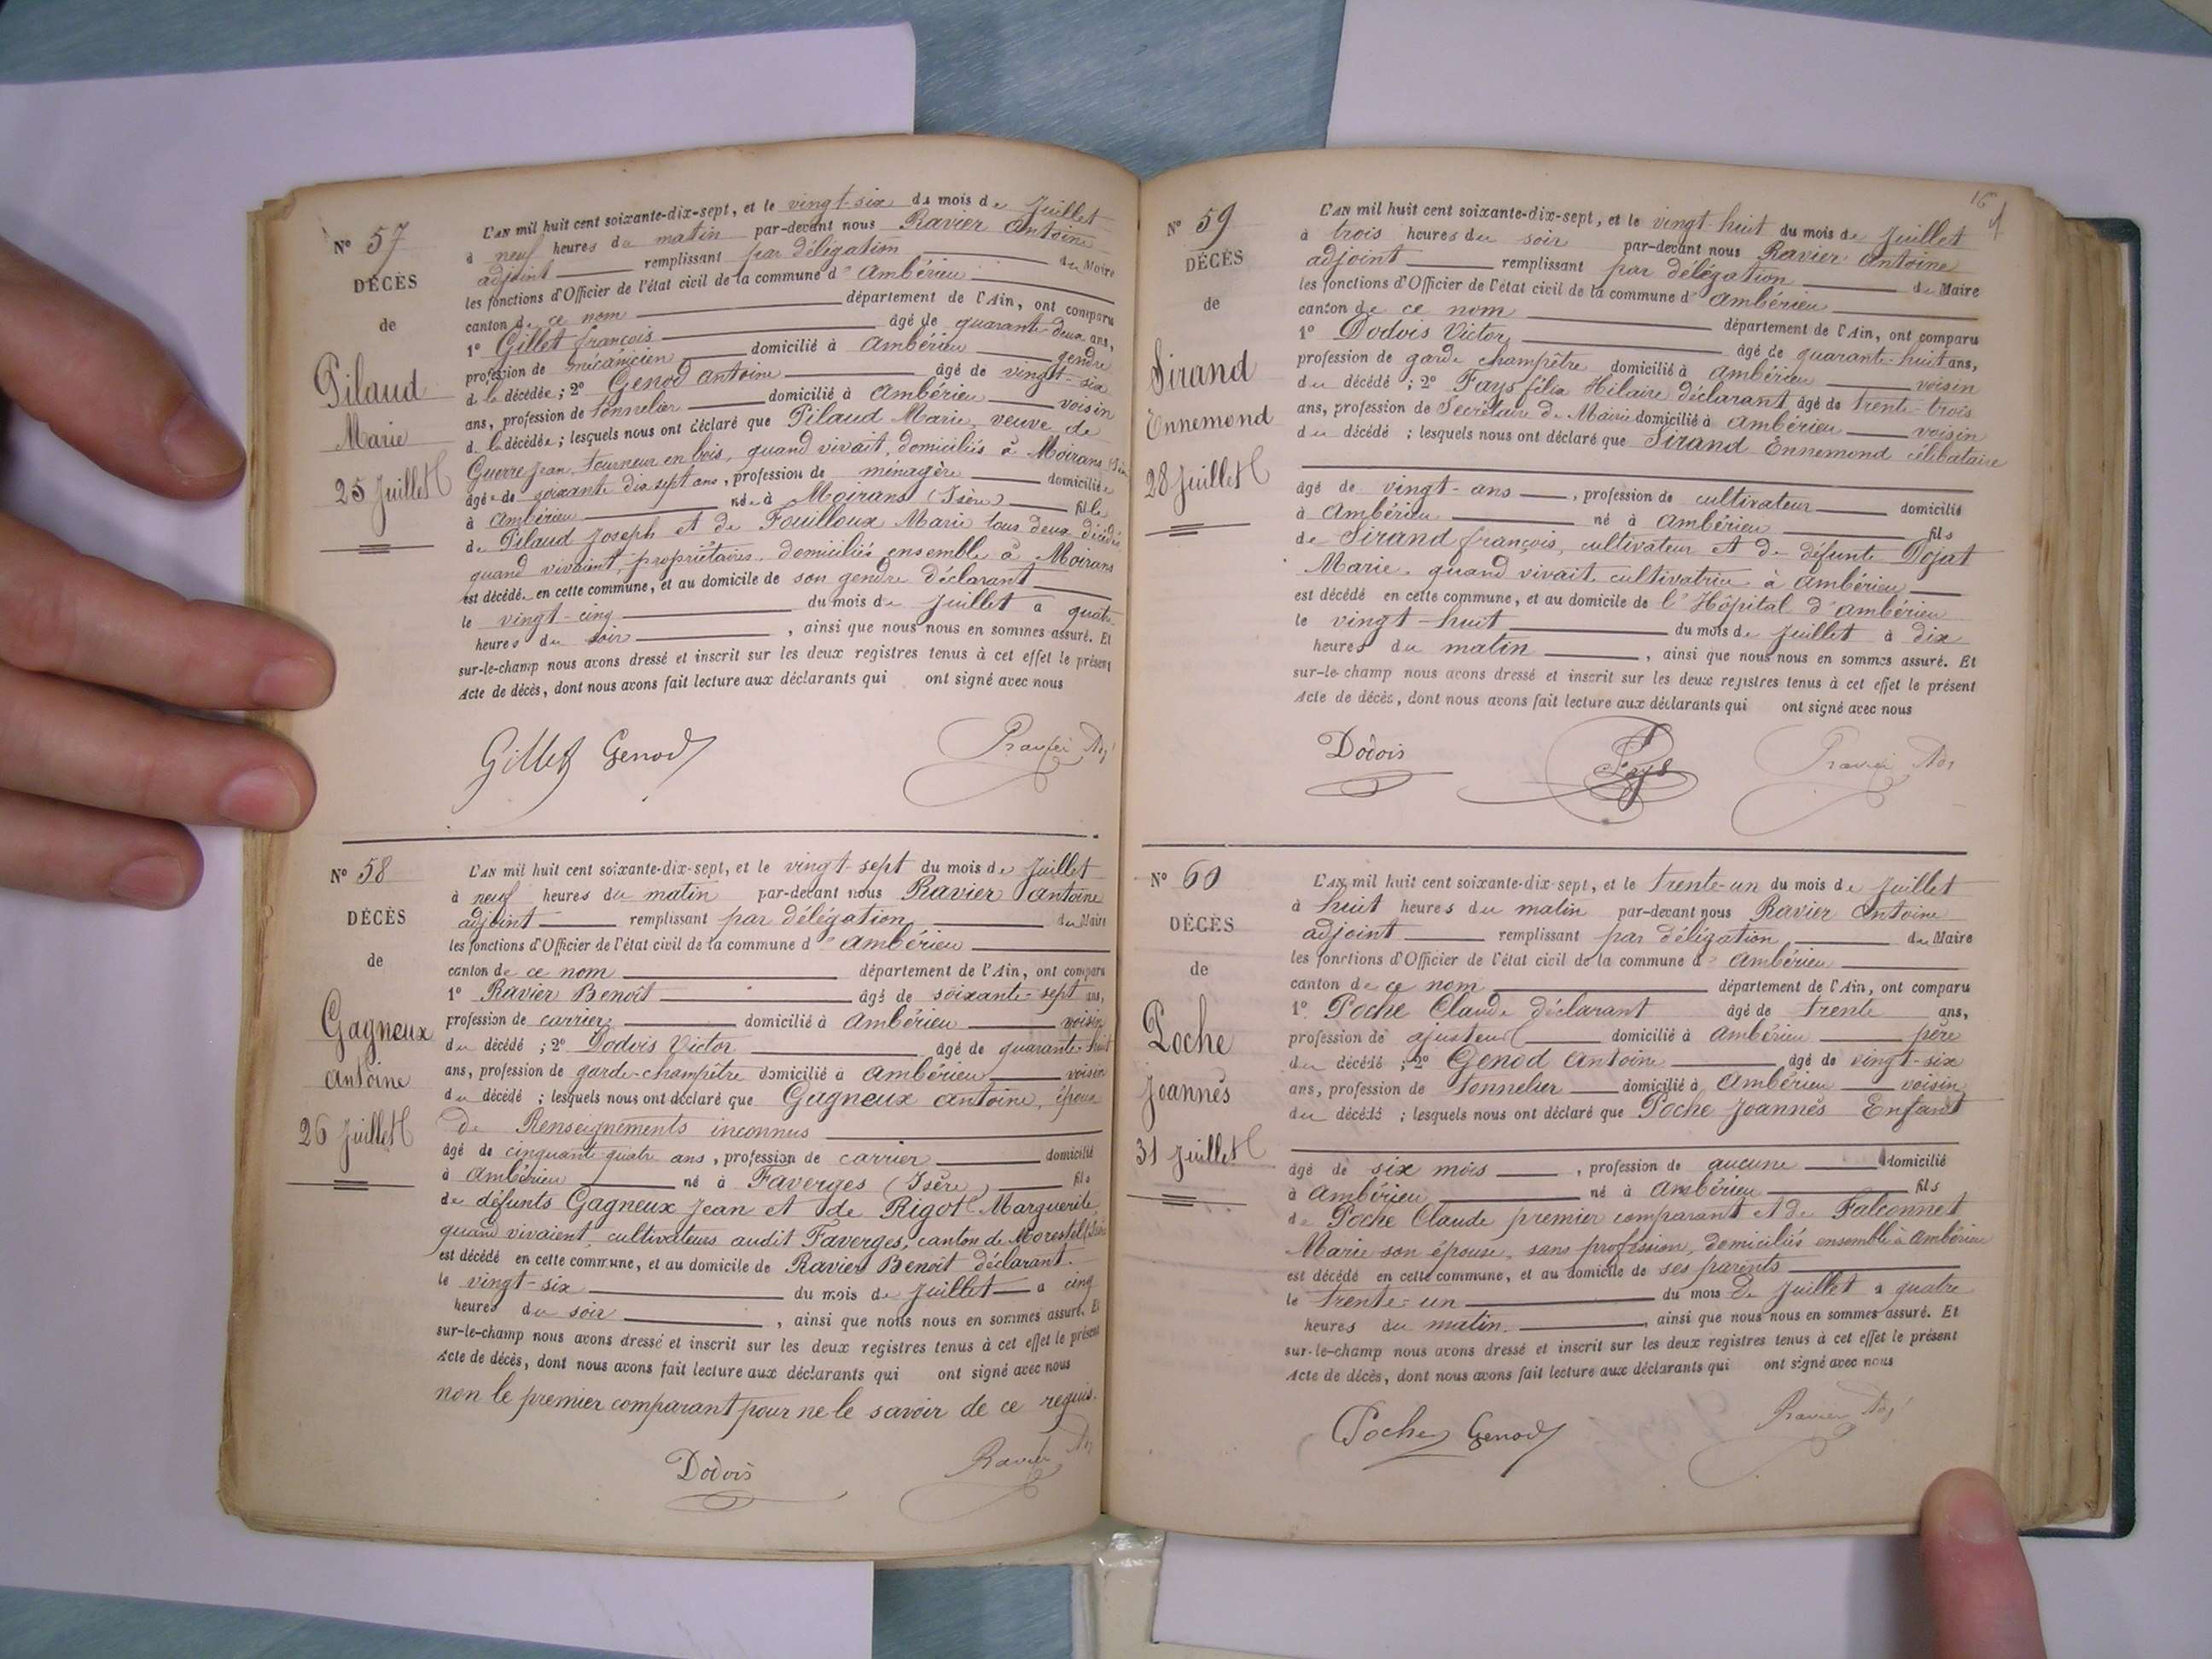 N° 57
DÉCÈS
de
Pilaud
Marie
25 Juillet
L'AN mil huit cent soixante-dix-sept, et le vingt-six du mois de Juillet
à neuf heures du matin par-devant nous Ravier Antoine
adjoint remplissant par délégation du Maire
les fonctions d'Officier de l'état civil de la commune d' Ambérieu
canton de ce nom département de l'Ain, ont comparu
1° Gillet françois âgé de quarante-deux ans,
profession de mécanicien domicilié à Ambérieu gendre
de la décédée; 2° Genod Antoine âgé de vingt-six
ans, profession de tonnelier domicilié à Ambérieu voisin
de la décédée; lesquels nous ont déclaré que Pilaud Marie, veuve de
Guerre Jean, tourneur en bois, quand vivait, domiciliés à Moirans
âgée de soixante dix sept ans, profession de ménagère domiciliée
à Ambérieu née à Moirans (Isère) fille
de Pilaud Joseph et de Fouilloux Marie tous deux décédés
quand vivaient, propriétaires, domiciliés ensemble à Moirans
est décédée en cette commune, et au domicile de son gendre déclarant
le vingt-cinq du mois de Juillet à quatre
heures du soir, ainsi que nous nous en sommes assuré. Et
sur-le-champ nous avons dressé et inscrit sur les deux registres tenus à cet effet le présent
Acte de décès, dont nous avons fait lecture aux déclarants qui ont signé avec nous
Gillet Genod Ravier Adj
N° 58
DÉCÈS
de
Gagneux
Antoine
26 Juillet
L'AN mil huit cent soixante-dix-sept, et le vingt-sept du mois de Juillet
à neuf heures du matin par-devant nous Ravier Antoine
adjoint remplissant par délégation du Maire
les fonctions d'Officier de l'état civil de la commune d' Ambérieu
canton de ce nom département de l'Ain, ont comparu
1° Ravier Benoît âgé de soixante-sept ans,
profession de carrier domicilié à Ambérieu voisin
du décédé; 2° Dodois Victor âgé de quarante-huit
ans, profession de garde-champêtre domicilié à Ambérieu voisin
du décédé; lesquels nous ont déclaré que Gagneux Antoine, époux
de Renseignements inconnus
âgé de cinquante-quatre ans, profession de carrier domicilié
à Ambérieu né à Faverges (Isère) fils
de défunts Gagneux Jean et de Rigot Marguerite
quand vivaient cultivateurs audit Faverges, canton de Morestel (Isère)
est décédé en cette commune, et au domicile de Ravier Benoît déclarant.
le vingt-six du mois de Juillet à cinq
heures du soir, ainsi que nous nous en sommes assuré. Et
sur-le-champ nous avons dressé et inscrit sur les deux registres tenus à cet effet le présent
Acte de décès, dont nous avons fait lecture aux déclarants qui ont signé avec nous
non le premier comparant pour ne le savoir de ce requis.
Dodois Ravier Adj
16
N° 59
DÉCÈS
de
Sirand
Ennemond
28 Juillet
L'AN mil huit cent soixante-dix-sept, et le vingt huit du mois de Juillet
à trois heures du soir par-devant nous Ravier Antoine
adjoint remplissant par délégation du Maire
les fonctions d'Officier de l'état civil de la commune d' Ambérieu
canton de ce nom département de l'Ain, ont comparu
1° Dodois Victor âgé de quarante-huit ans,
profession de garde champêtre domicilié à Ambérieu voisin
du décédé; 2° Fays félix Hilaire déclarant âgé de trente-trois
ans, profession de Secrétaire de Mairie domicilié à Ambérieu voisin
du décédé; lesquels nous ont déclaré que Sirand Ennemond célibataire
âgé de vingt-ans, profession de cultivateur domicilié
à Ambérieu né à Ambérieu fils
de Sirand françois, cultivateur et de défunte Dojat
Marie, quand vivait cultivatrice à Ambérieu
est décédé en cette commune, et au domicile de l'Hôpital d'Ambérieu
le vingt-huit du mois de Juillet à dix
heures du matin, ainsi que nous nous en sommes assuré. Et
sur-le-champ nous avons dressé et inscrit sur les deux registres tenus à cet effet le présent
Acte de décès, dont nous avons fait lecture aux déclarants qui ont signé avec nous
Dodois Fays Ravier Adj
N° 60
DÉCÈS
de
Poche
Joannès
31 Juillet
L'AN mil huit cent soixante-dix-sept, et le trente-un du mois de Juillet
à huit heures du matin par-devant nous Ravier Antoine
adjoint remplissant par délégation du Maire
les fonctions d'Officier de l'état civil de la commune d' Ambérieu
canton de ce nom département de l'Ain, ont comparu
1° Poche Claude déclarant âgé de trente ans,
profession de ajusteur domicilié à Ambérieu père
du décédé; 2° Genod Antoine âgé de vingt-six
ans, profession de tonnelier domicilié à Ambérieu voisin
du décédé; lesquels nous ont déclaré que Poche Joannès Enfant
âgé de six mois, profession de aucune domicilié
à Ambérieu né à Ambérieu fils
de Poche Claude premier comparant et de Falconnet
Marie son épouse, sans profession, domiciliés ensemble à Ambérieu
est décédé en cette commune, et au domicile de ses parents
le trente-un du mois de Juillet à quatre
heures du matin, ainsi que nous nous en sommes assuré. Et
sur-le-champ nous avons dressé et inscrit sur les deux registres tenus à cet effet le présent
Acte de décès, dont nous avons fait lecture aux déclarants qui ont signé avec nous
Poche Genod Ravier Adj